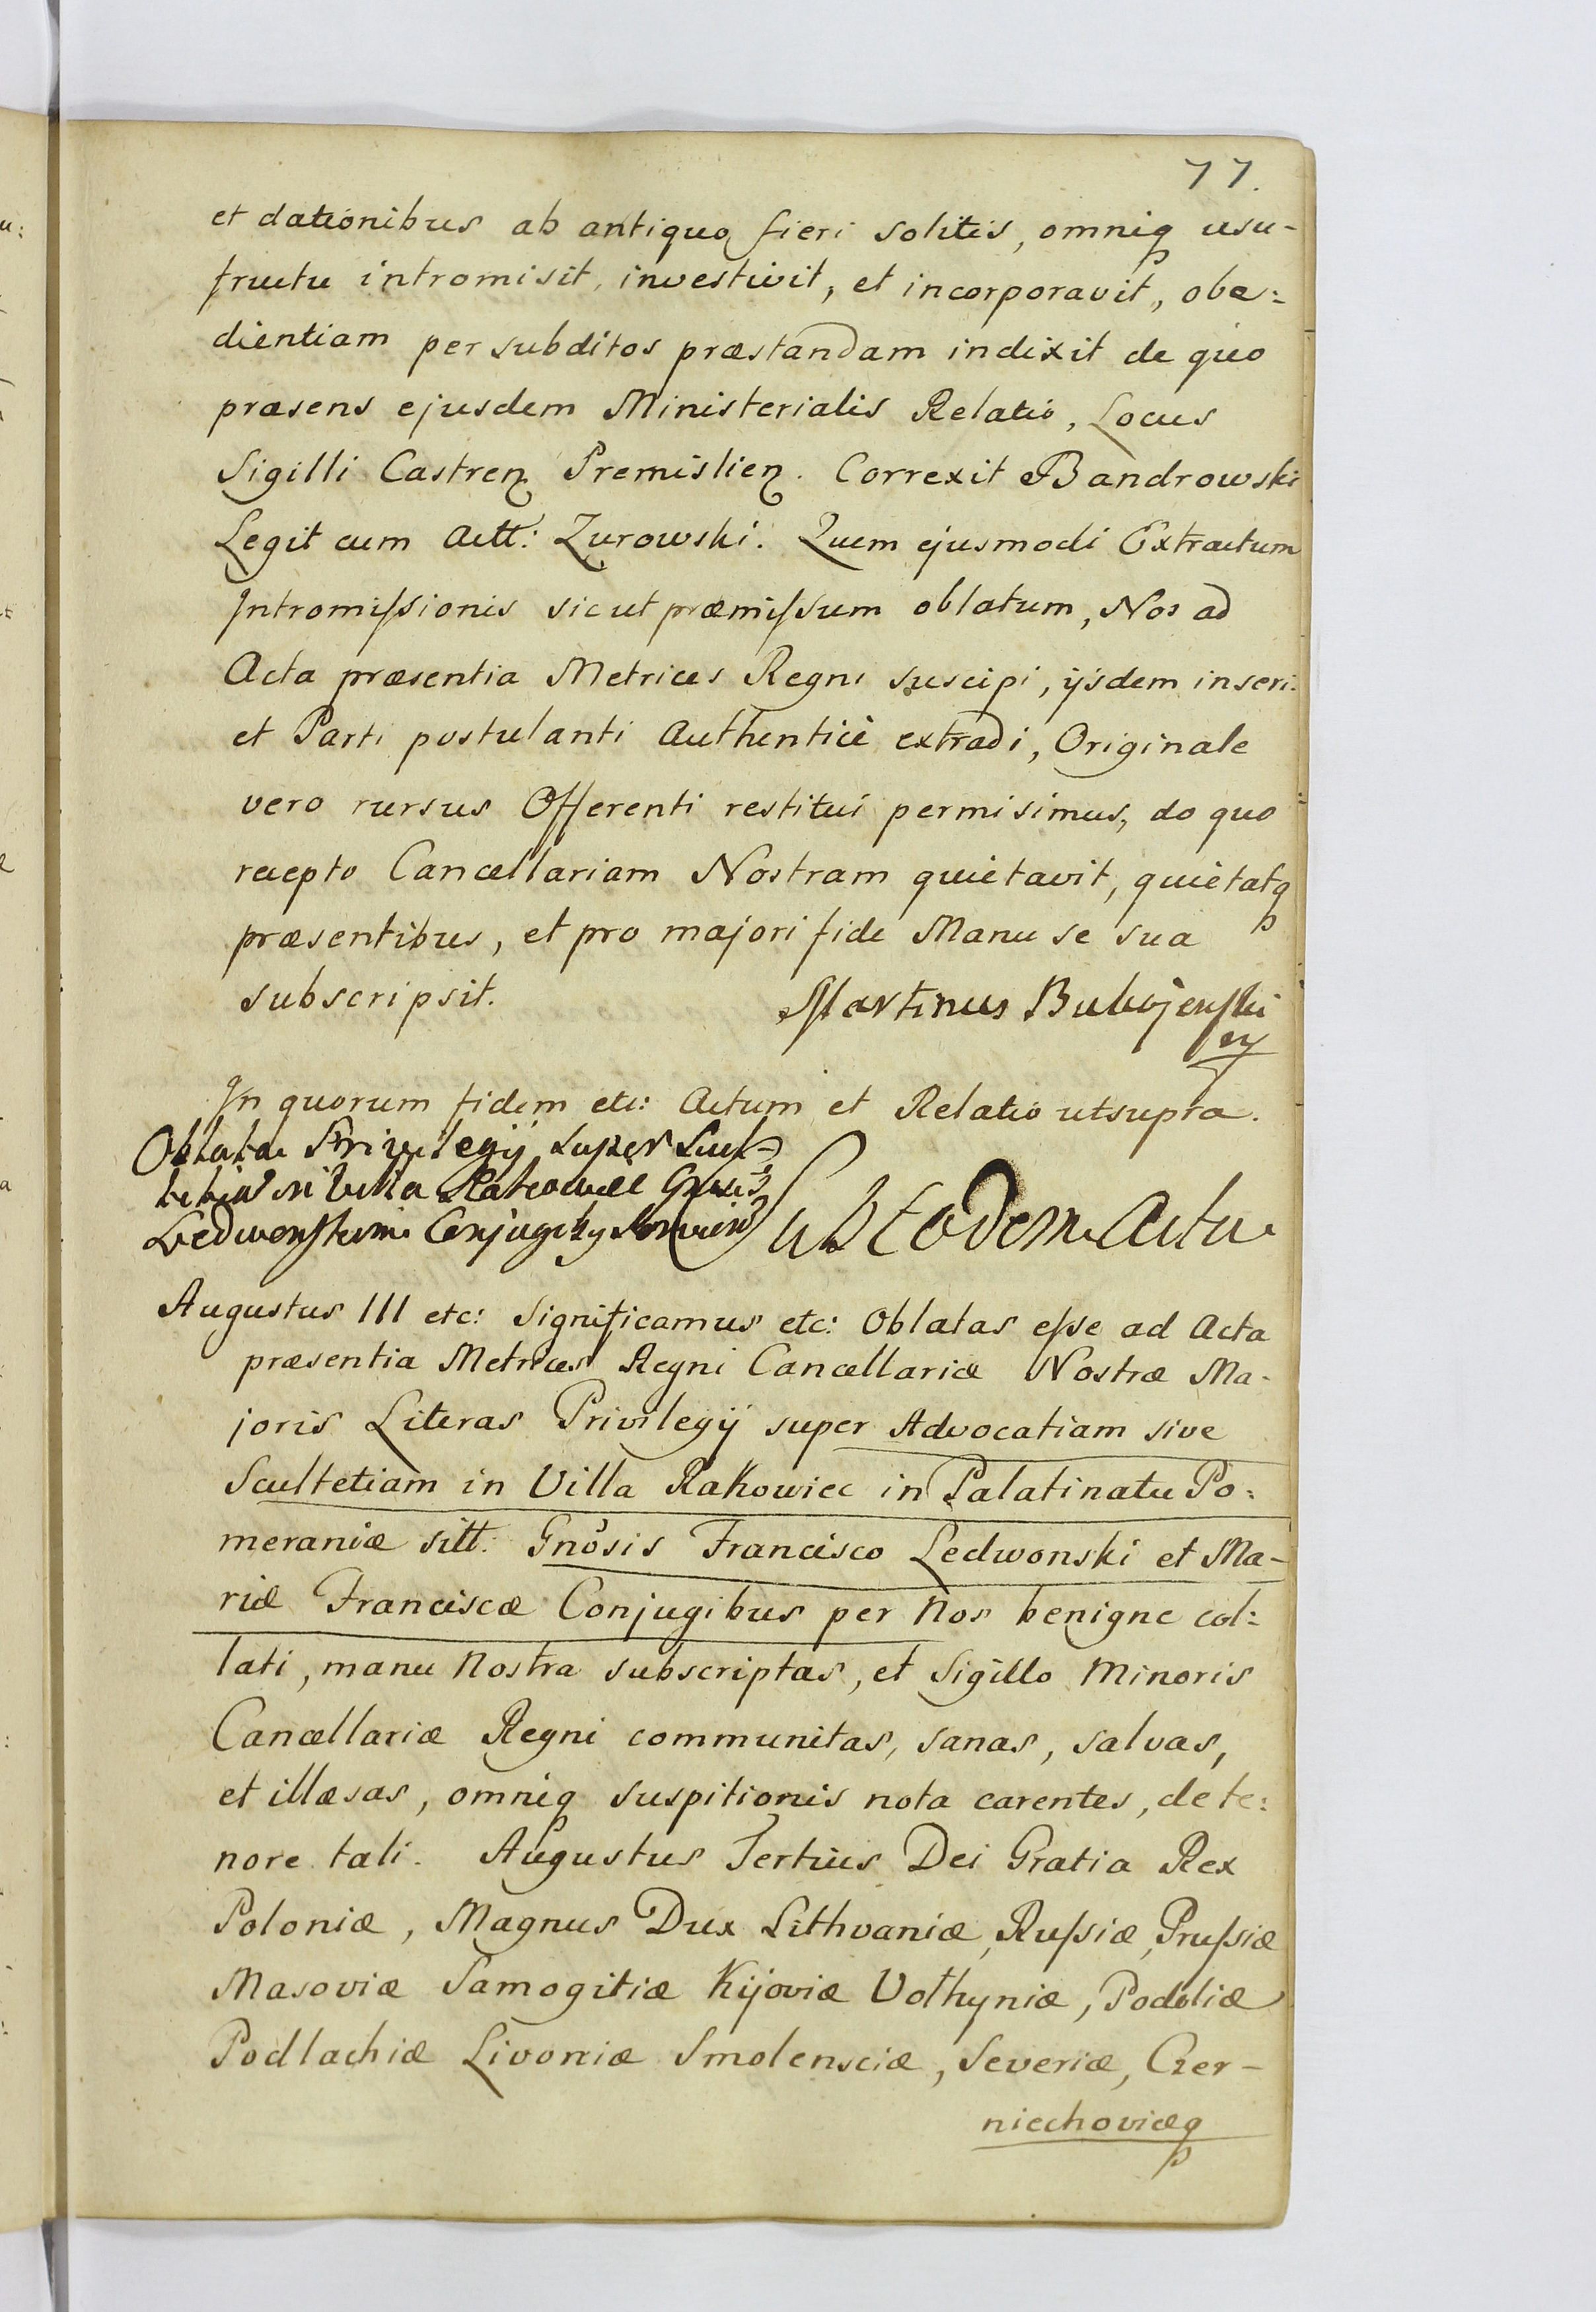 77.
et dationibus ab antiquo fieri solitis, omniq usu-
fructu intromisit, investivit, et incorporavit, obe:
dientiam per subditos præstandam indixit de quo
præsens ejusdem Ministerialis Relatio, Locus
Sigilli Castren Premislien. Correxit Bandrowski
Legit cum Actt: Zurowski. Quem ejusmodi Extractum
Intromissionis sicut præmissum oblatum, Nos ad
Acta præsentia Metrices Regni suscipi, ijsdem inseri
et Parti postulanti Authentice extradi, Originale
vero rursus Offerenti restitui permisimus, do quo
recepto Cancellariam Nostram quietavit, quietatq
præsentibus, et pro majori fide Manu se sua
subscripsit.
Martinus
In quorum fidem etc: Actum et Relatio utsupra.
Oblata Privilegij super Scul-
in Villa
Sub eodem Actu
Augustus III etc: Significamus etc: Oblatas esse ad Acta
præsentia Metrices Regni Cancellariæ Nostræ Ma-
joris Literas Privilegij super Advocatiam sive
Scultetiam in Villa Rakowiec in Palatinatu Po:
meraniæ sitt. Gnosis Francisco Ledwonski et Ma-
riæ Franciscæ Conjugibus per Nos benigne col:
lati, manu Nostra subscriptas, et Sigillo Minoris
Cancellariæ Regni communitas, sanas, salvas,
et illæsas, omniq suspitionis nota carentes, de te:
nore tali. Augustus Tertius Dei Gratia Rex
Poloniæ, Magnus Dux Lithvaniæ, Russiæ, Prussiæ
Masoviæ Samogitiæ Kijoviæ Volhyniæ, Podoliæ
Podlachiæ Livoniæ Smolensciæ, Severiæ, Czer-
niechoviæq